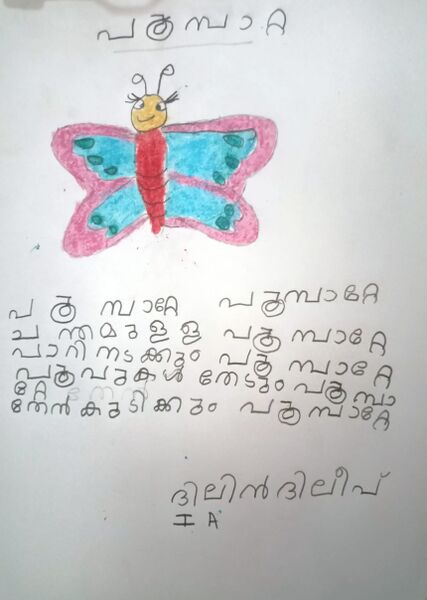 പൂമ്പാറ്റ
പൂമ്പാറ്റേ പൂമ്പാറ്റേ
ചന്തമുള്ള പൂമ്പാറ്റേ
പാറിനടക്കും പൂമ്പാറ്റേ
പൂവുകൾ തേടും പൂമ്പാ
റ്റേ തേൻ
തേൻകുടിക്കും പൂമ്പാറ്റേ
ദിലിൻദിലീപ്
I A